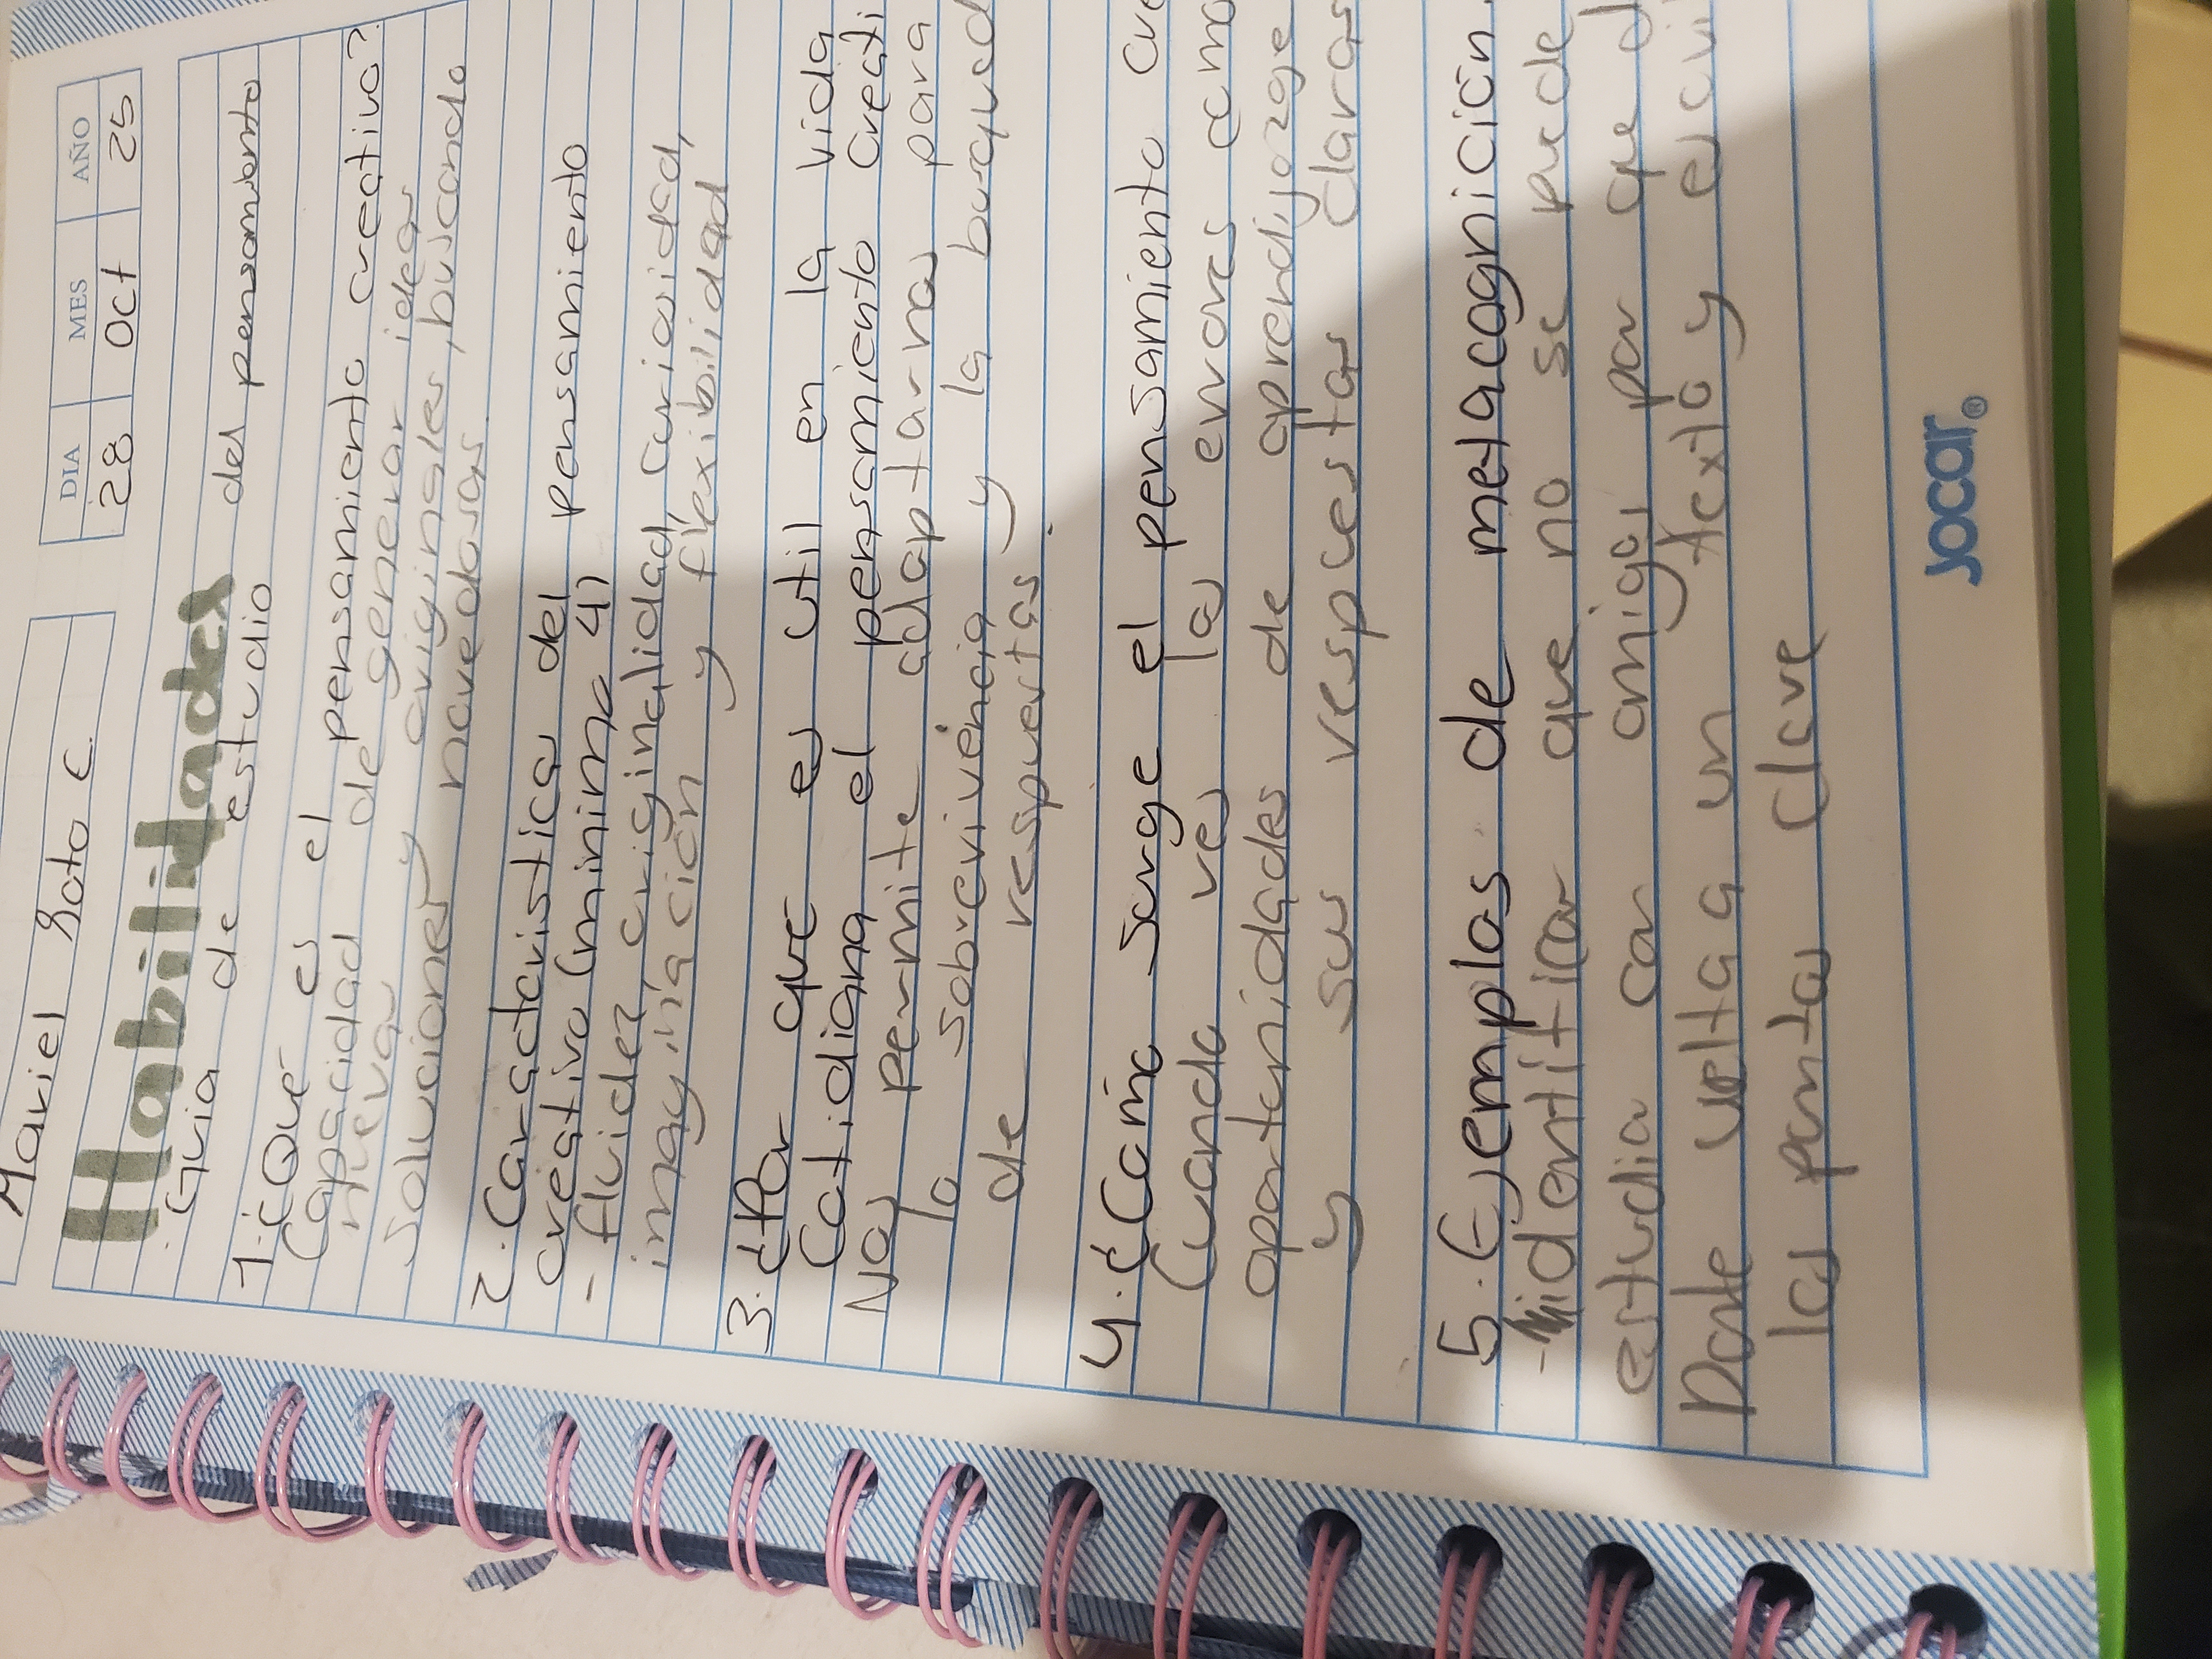 Mariel Soto C.
DIA MES AÑO
28 Oct 25
Habilidades
Guia de estudio del pensamiento
1. ¿Qué es el pensamiento creativo?
Capacidad de generar ideas
nuevas y originales, buscando
soluciones novedosas
2. Caractaristica del pensamiento
creativo (minimo 4)
- fluidez, originalidad, curiosidad,
imaginación y flexibilidad
3. ¿Por que es util en la vida
Cotidiana el pensamiento creati
Nos permite adaptarnos para
la sobrevivencia y la busqued
de respuestas.
4. ¿Como surge el pensamiento cre
Cuando ves los errores como
oportunidades de aprendizage
y sus respuestas claras
5. Ejemplos de metacognición.
- identificar que no se puede
estudiar con amigos por que d
Darle vuelta a un texto y escri
los puntos clave
Jocar®